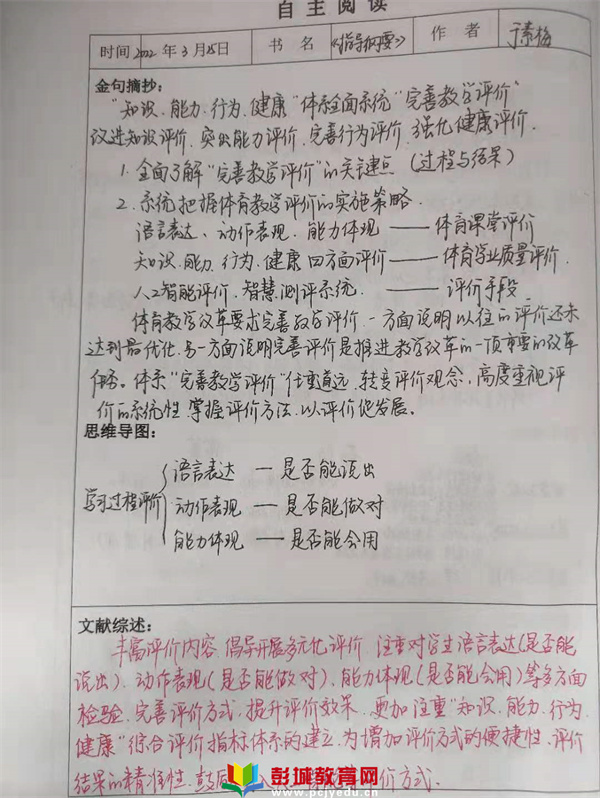 自主阅读
时间 2022年3月25日 书名 《指导纲要》 作者 于素梅
金句摘抄：
"知识、能力、行为、健康"体系全面系统"完善教学评价"
改进知识评价，突出能力评价，完善行为评价，强化健康评价。
1. 全面了解"完善教学评价"的关键点（过程与结果）
2. 系统把握体育教学评价的实施策略.
语言表达、动作表现、能力体现 —— 体育课堂评价
知识、能力、行为、健康四方面评价 —— 体育学业质量评价.
人工智能评价、智慧测评系统. —— 评价手段
体育教学改革要求完善教学评价，一方面说明以往的评价还未
达到最优化，另一方面说明完善评价是推进教学改革的一项重要的改革
任务。体系"完善教学评价"任重道远，转变评价观念，高度重视评
价的系统性，掌握评价方法，以评价促发展。
思维导图：
学习过程评价
语言表达 — 是否能说出
动作表现 — 是否能做对
能力体现 — 是否能会用
文献综述：
丰富评价内容，倡导开展多元化评价，注重对学生语言表达（是否能
说出）、动作表现（是否能做对）、能力体现（是否能会用）等多方面
检验，完善评价方式，提升评价效果，更加注重"知识、能力、行为、
健康"综合评价指标体系的建立，为增加评价方式的便捷性、评价
结果的精准性，鼓励 价方式.
彭城教育网
www.pcjyedu.cn